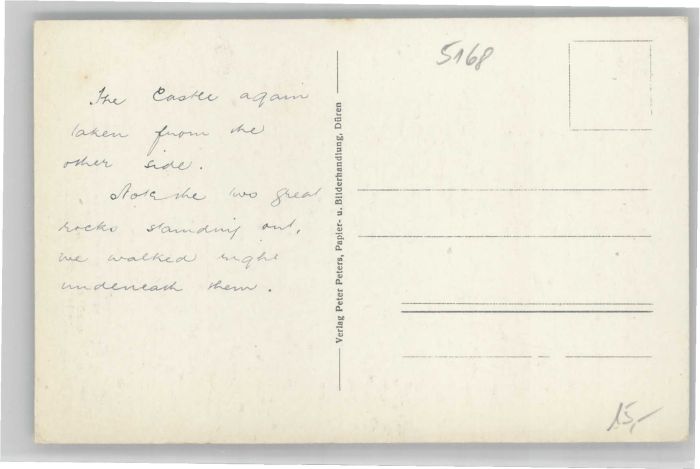 The Castle again
taken from the
other side.
Note the two great
rocks standing out,
we walked right
underneath them.
Verlag Peter Peters, Papier- u. Bilderhandlung, Düren
5168
15,-